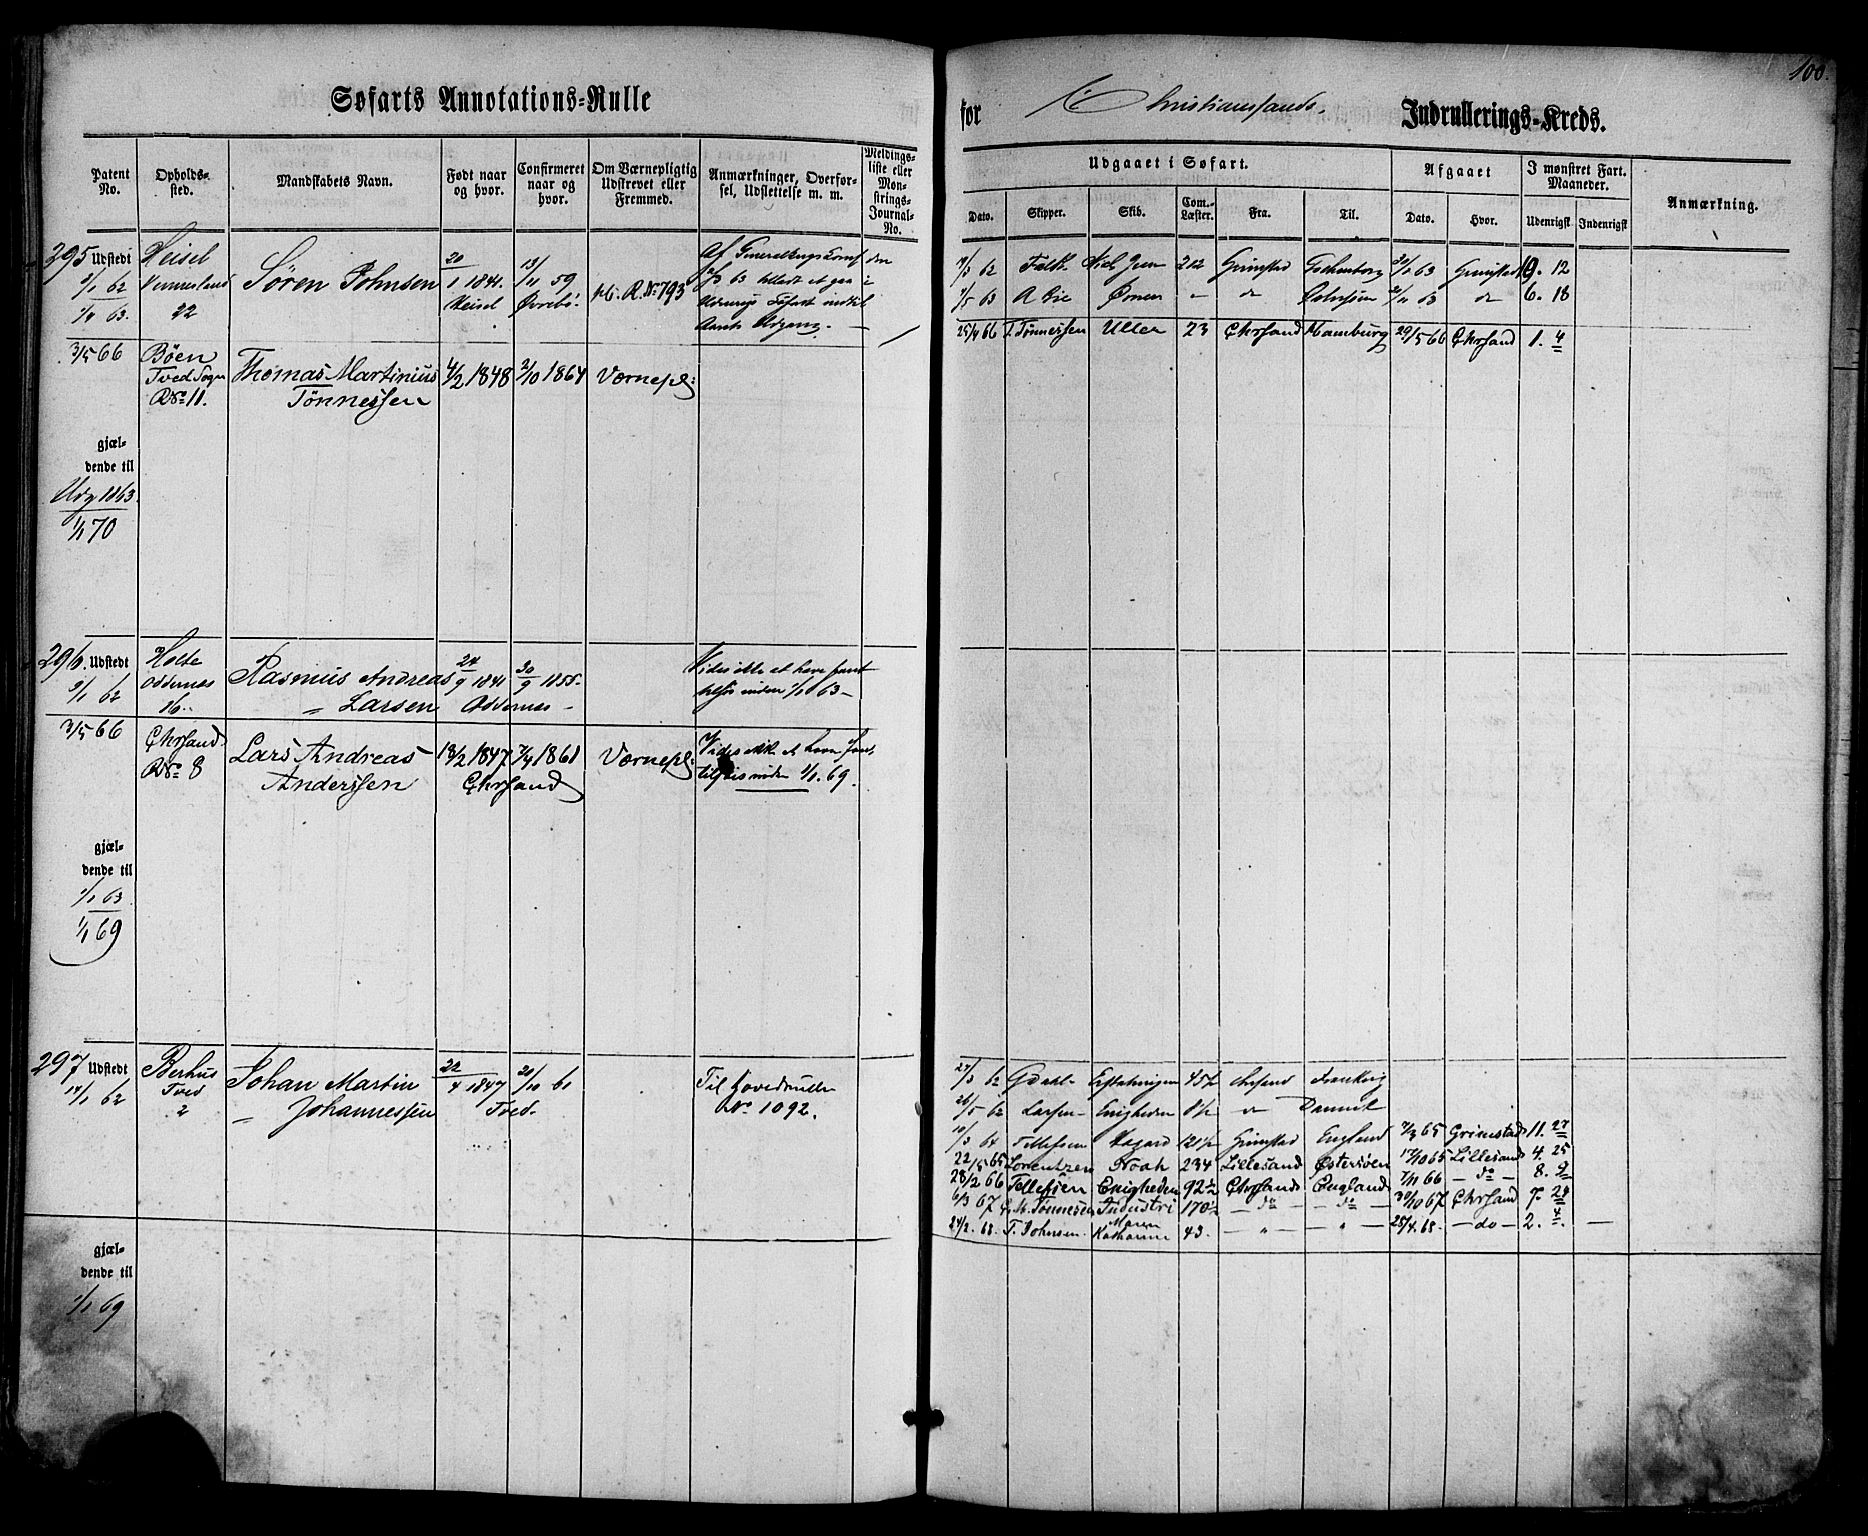 100.
Søfarts Annotations-Rulle
for Christianssands Indrullerings-Kreds.
Patent No.
Opholds-sted.
Mandskabets Navn.
Født naar og hvor.
Confirmeret naar og hvor.
Om Værnepligtig Udskrevet eller Fremmed.
Anmærkninger, Overførsel, Udslettelse m. m.
Meldings-liste eller Mønstrings-Journal-No.
Udgaaet i Søfart.
Dato.
Skipper.
Skib.
Com.-Læster.
Fra.
Til.
Afgaaet
Dato.
Hvor.
I mønstret Fart. Maaneder.
Udenrigsk
Indenrigsk
Anmærkning.
295 Udstedt
1/4 63.
Heisel
Vennesland
22
Søren Johnsen
20/1 1841.
Heisel
13/11 59
Øvrebö.
R. No 793
19/3 62 Falk 212 Grimstad 63 Grimstad 12
63 Ørnen do 63 do 6. 18
3/5 66
Böen
Tved Sogn
R.No 11.
Thomas Martinius
Tönnessen
4/2 1848
2/10 1864
Værnepl:
25/4 66 T. Tönnessen Uller 23 Chrsand Hamburg 29/5 66 Chrsand 1. 4
gjæl-
dende til
Udg 1863.
1/1 70
296. Udstedt
9/1 62
Holte
Oddernes
16.
Rasmus Andreas
Larsen
24/9 1841
Oddernes
30/9 1855.
Vides ikke at have faret
tilsøs inden 1/1 63
3/5 66
Chrsand
R.No 8
Lars Andreas
Anderssen
18/2 1847
Chrsand
7/4 1861
Værnepl:
Vides ikke at have faret
tilsøis inden 1/1. 69.
gjæl-
dende til
1/1 63
1/1 69
297 Udstedt
14/1 62
Berhus
Tved
2
Johan Martin
Johannessen
22/4 1847
Tved.
21/10 61
Til Hovedrulle
No. 1092.
27/3 62 45½ Chrsand
26/5 62 Larsen Enigheden do Danmk
10/3 64 121½ Grimstad England 65 Grimstad 11. 27
22/5 65 Lorentzen Noah 234 Lillesand Østersöen 17/10 65 Lillesand 4. 25
28/2 66 Tellefsen Enigheden 92½ Chrsand England 7/11 66 do 8. 9
6/3 67 Tönnesen Industri 170½ do do 67 Chrsand 7. 28
24/2. 68. T. Johnsen Maren Kathrine 43. " " 28/4. 68. do 2. 4.
gjæl-
dende til
1/1 69